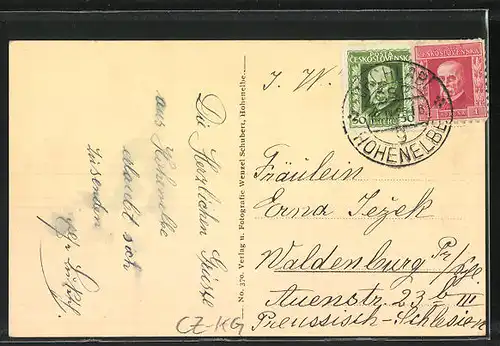 Die Herzlichen Grüsse
aus Hohenelbe
erlaubt sich
zusenden
No. 370. Verlag u. Fotografie Wenzel Schubert, Hohenelbe.
POŠTA
ČESKOSLOVENSKÁ
50 50
ČESKOSLOVENSKÁ
HOHENELBE
J. W.
Fräulein
Erna Jezek
Waldenburg Pr/
Auenstr. 23 b III
Preussisch-Schlesien
CZ-KG